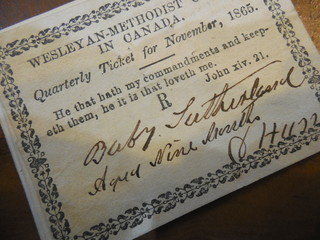 WESLEYAN-METHODIST
IN CANADA.
Quarterly Ticket for November, 1865.
He that hath my commandments and keep-
eth them, he it is that loveth me. John xiv. 21.
R
Baby Sutherland
Aged Nine Months